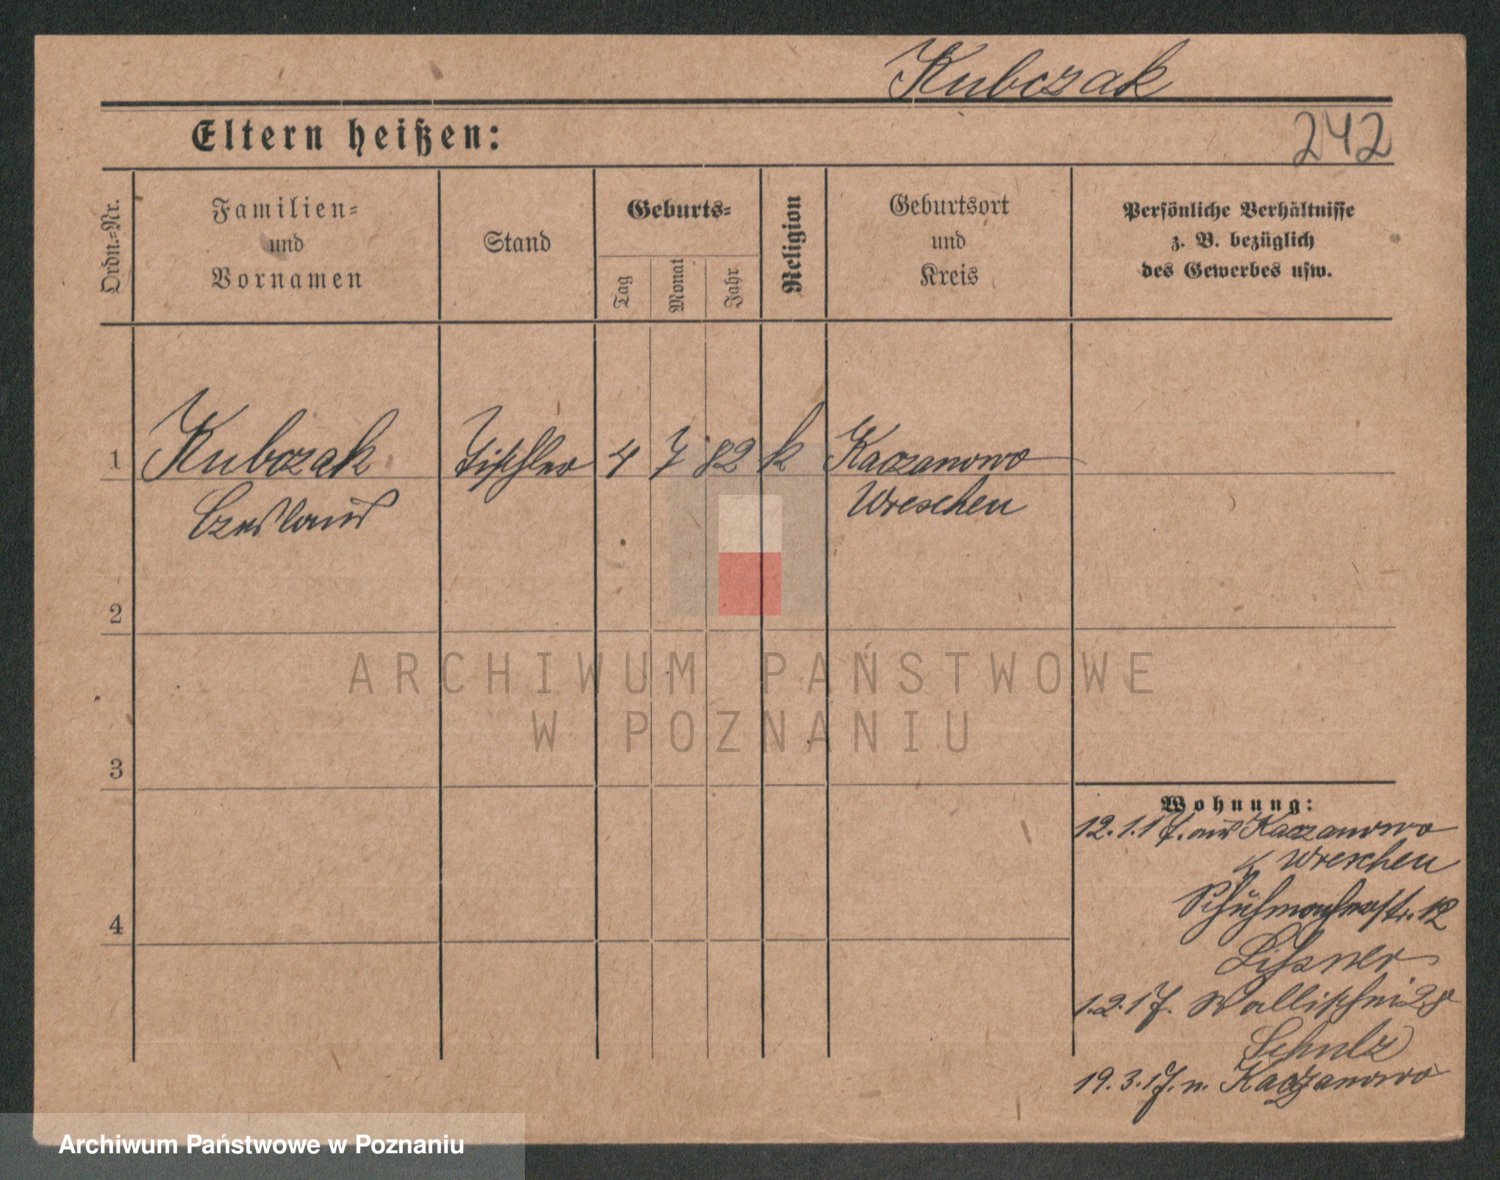 Kubczak
Eltern heißen:
242
Ordn.-Nr.
Familien-
und
Vornamen
Stand
Geburts-
Tag
Monat
Jahr
Religion
Geburtsort
und
Kreis
Persönliche Verhältnisse
z. B. bezüglich
des Gewerbes usw.
1 Kubczak Tischler 4 7 82 k Kaczanowo
Czeslaus Wreschen
2
ARCHIWUM PAŃSTWOWE
W POZNANIU
3
Wohnung:
12.1.17. aus Kaczanowo
Wreschen
Schuhmacherstr. 12
4
Lissner
1.2.17. Wallischei
Schulz
19.3.17. n. Kaczanowo
Archiwum Państwowe w Poznaniu